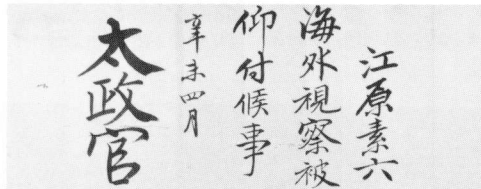 江原素六
海外視察被
仰付候事
辛未四月
太政官